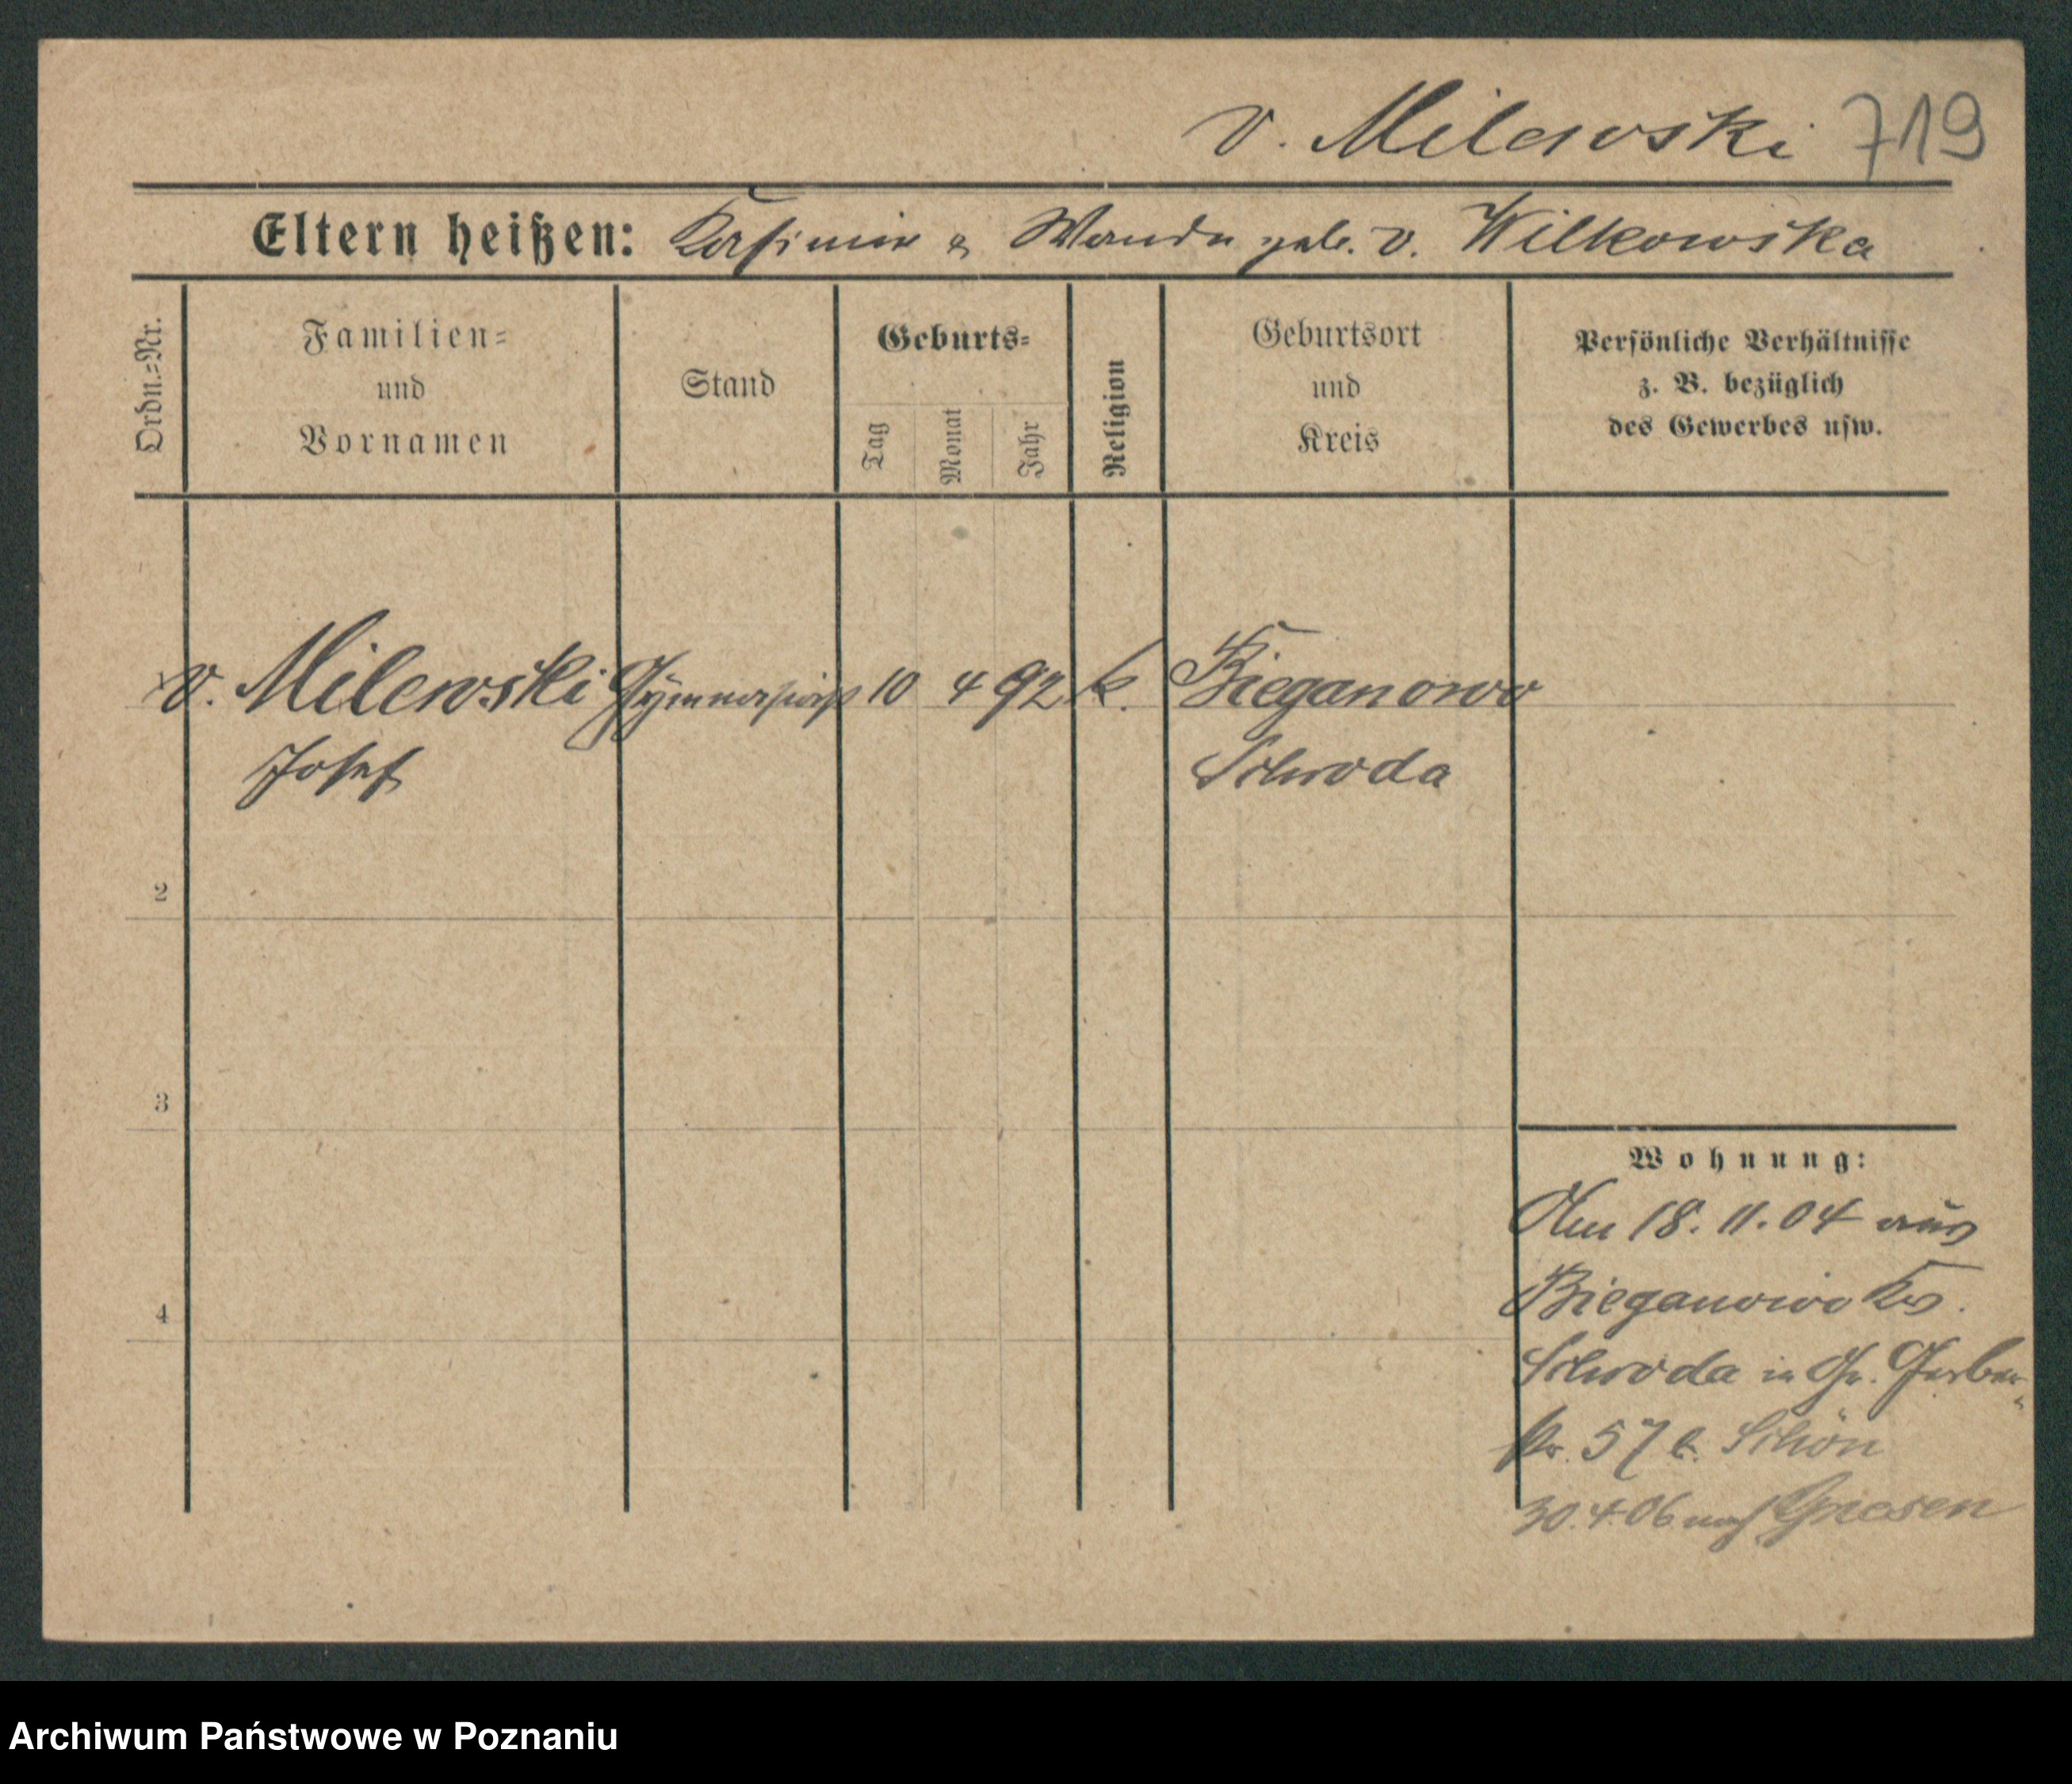 v. Milewski 719
Eltern heißen: Kasimir & Wanda geb. v. Wilkowska
Ordn.-Nr.
Familien-
und
Vornamen
Stand
Geburts-
Tag
Monat
Jahr
Religion
Geburtsort
und
Kreis
Persönliche Verhältnisse
z. B. bezüglich
des Gewerbes usw.
v. Milewski Gymnasiast 10 4 92 k. Bieganowo
Josef Schroda
2
3
4
Wohnung:
Am 18.11.04 aus
Bieganowo Krs.
Schroda in Gr. Gerber-
str. 57 b. Schön
30.4.06 nach Gnesen
Archiwum Państwowe w Poznaniu